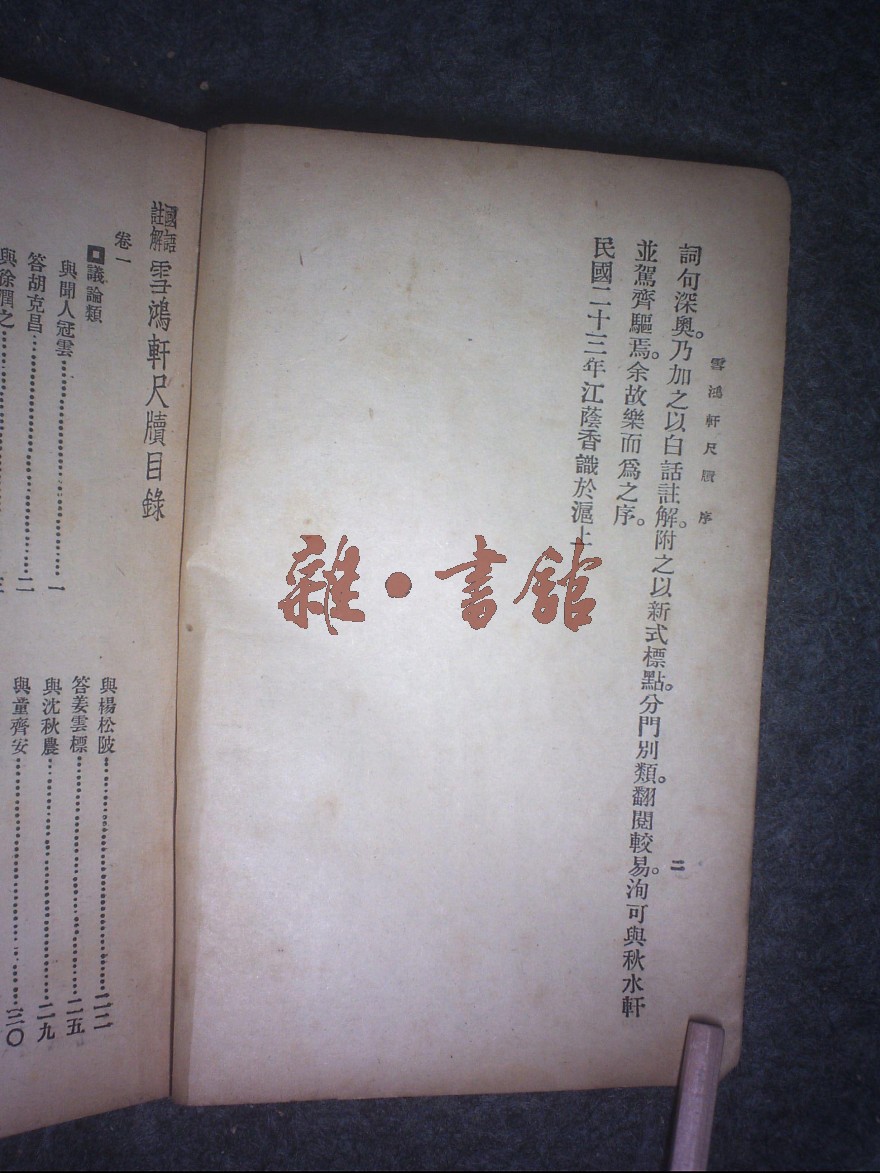 雪鴻軒尺牘 序
二
詞句深奧。乃加之以白話註解。附之以新式標點。分門別類。翻閱較易。洵可與秋水軒
並駕齊驅焉。余故樂而爲之序。
民國二十三年江蔭香識於滬上
雜·書館
國語註解 雪鴻軒尺牘目錄
卷一
議論類
與聞人冠雲……一
答胡克昌……二
與徐潤之……三
與楊松陂……二二
答姜雲標……二五
與沈秋農……二九
與童齊安……三〇